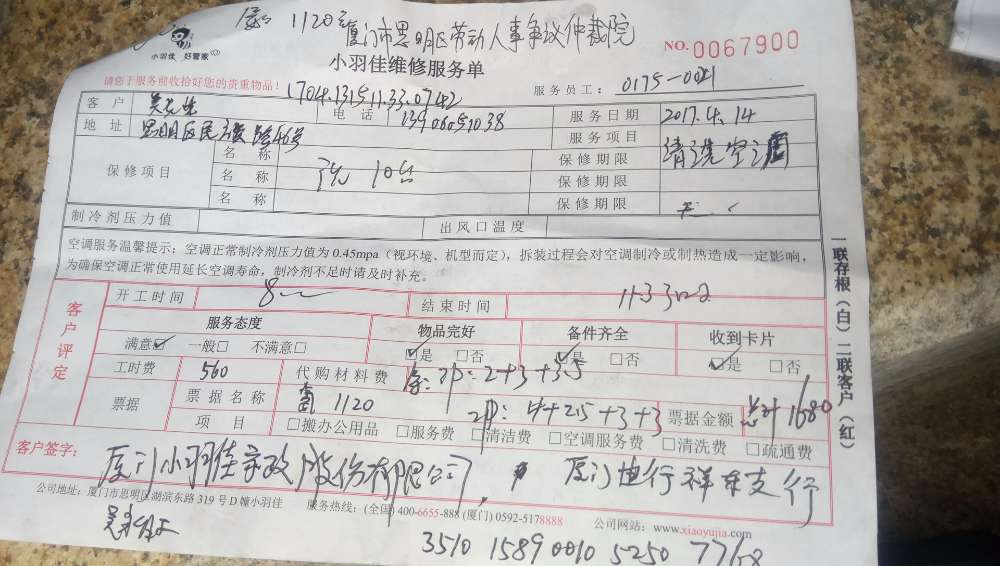 1120
厦门市思明区劳动人事争议仲裁院
小羽佳 好管家
NO.0067900
小羽佳维修服务单
请您于服务前收拾好您的贵重物品!
1704.1315.11.33.0742
服务员工: 0175-0021
客 户
电 话
服务日期 2017.4.14
地 址 思明区民
服务项目 清洗空调
保修项目
名 称 洗10台 保修期限
名 称 保修期限
名 称 保修期限
制冷剂压力值 出风口温度
空调服务温馨提示:空调正常制冷剂压力值为0.45mpa(视环境、机型而定),拆装过程会对空调制冷或制热造成一定影响,
为确保空调正常使用延长空调寿命,制冷剂不足时请及时补充。
客户评定
开工时间 结束时间
服务态度 物品完好 备件齐全 收到卡片
满意☑ 一般□ 不满意□ ☑是 □否 ☑是 □否 ☑是 □否
工时费 560 代购材料费
票据 票据名称 1120 票据金额 1680
项 目 □搬办公用品 □服务费 □清洁费 □空调服务费 □清洗费 □疏通费
客户签字: 厦门小羽佳家政股份有限公司
支行
公司地址:厦门市思明区湖滨东路319号D幢小羽佳 服务热线:(全国)400-6655-888 (厦门)0592-5178888 公司网站:www.xiaoyujia.com
3510 1589 0010 5250 7768
一联存根(白) 二联客户(红)